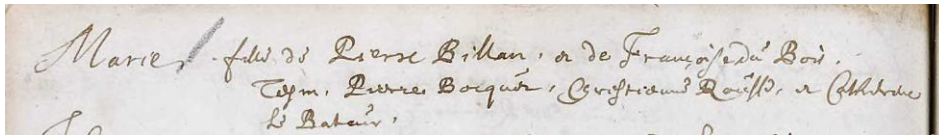 Marie, fille de Pierre Billau, et de Françoise du Bois.
Tesm. Pierre Bocquet, Chrestienne Rousse, et Catherine
le Bateur,